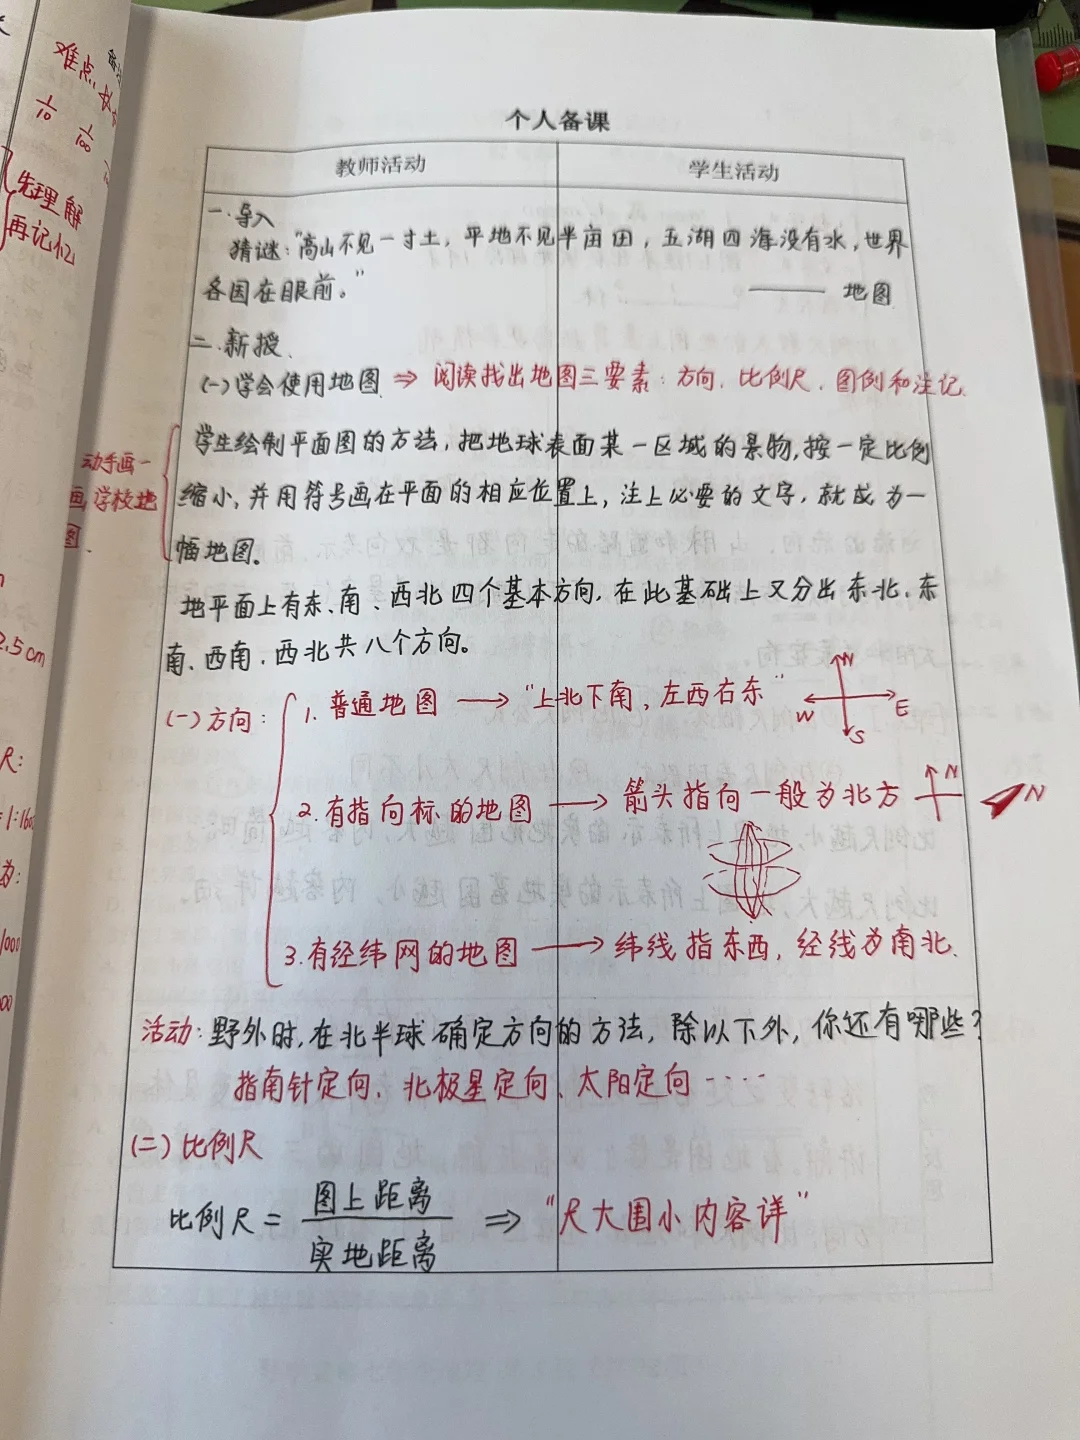 难点
1/10
1/100
先理解
再记忆
2.5cm
尺:
=1:160
为:
1000
000
个人备课
教师活动
学生活动
一.导入
猜谜:"高山不见一寸土，平地不见半亩田，五湖四海没有水，世界
各国在眼前。"
—— 地图
二.新授.
(一)学会使用地图 ⇒ 阅读找出地图三要素:方向、比例尺、图例和注记.
动手画一
画,学校地
图.
学生绘制平面图的方法，把地球表面某一区域的景物,按一定比例
缩小,并用符号画在平面的相应位置上，注上必要的文字，就成为一
幅地图。
地平面上有东、南、西北四个基本方向,在此基础上又分出东北、东
南、西南、西北共八个方向。
(一)方向:
1. 普通地图 → "上北下南，左西右东"
N
W
E
S
2.有指向标的地图 → 箭头指向一般为北方
N
N
3.有经纬网的地图 → 纬线指东西，经线为南北.
活动:野外时,在北半球确定方向的方法，除以下外，你还有哪些?
指南针定向、北极星定向、太阳定向·····
(二)比例尺
比例尺=图上距离/实地距离 ⇒ "尺大围小内容详"